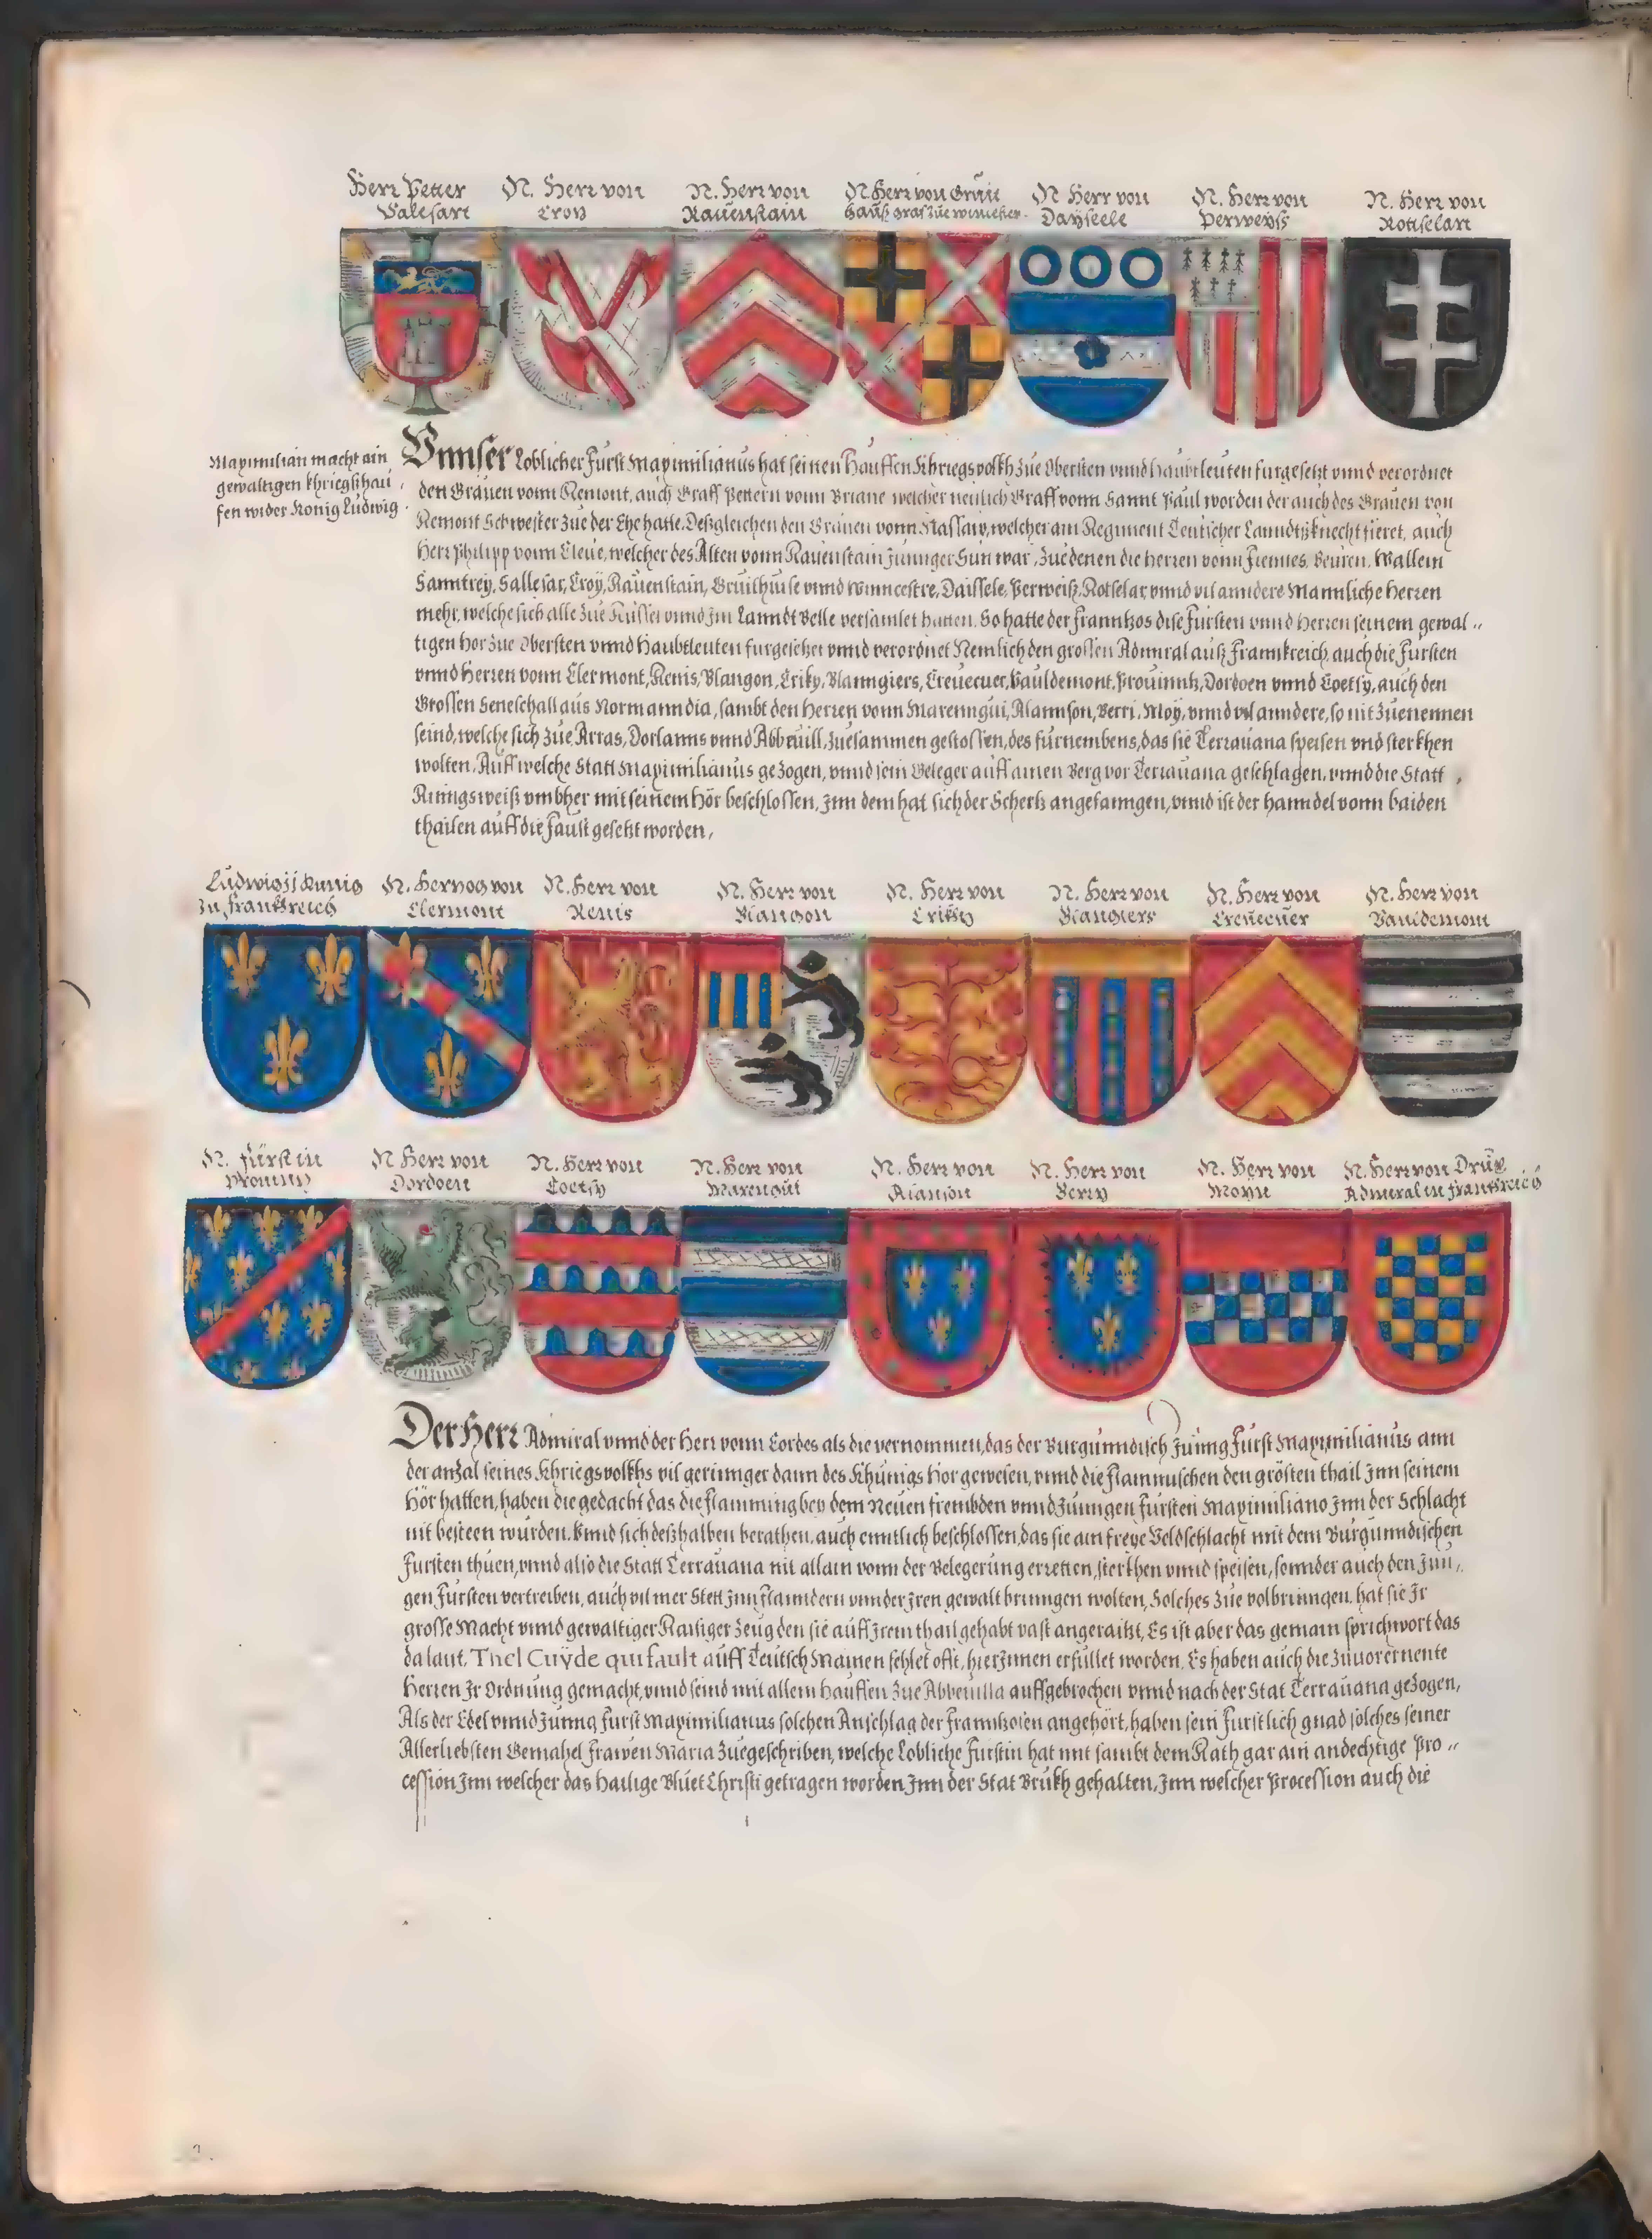 Herr Petter
Salesart
N. Herr von
Croy
N. Herr von
Rauenstain
N. Herr von Grüit
hauß graf zue winchester.
N Herr von
Dayseele
N. Herr von
Perweyss
N. Herr von
Rottselart
Maximilian macht ain
gewaltigen khriegßhau
fen wider Konig Ludwig.
Vnnser Loblicher Fürst Maximilianus hat seinen Hauffen Khriegsvolkh zue Obersten vnnd haubtleuten furgesetzt vnnd verordnet
den Grauen vonn Remont, auch Graff Pettern vonn Briane welcher neulich Graff vonn Sannt Paul worden der auch des Grauen von
Remont Schwester zue der Ehe hatte, Deßgleichen den Grauen vonn Nassaw, welcher am Regiment Teutscher Lanndtßknecht fieret, auch
Herr Philipp vonn Cleue, welcher des Alten vonn Rauenstain Junnger Sun war, zue denen die herren vonn Fiennes, Beuren, Wallein
Sanntrey, Sallesar, Croy, Rauenstain, Gruithuise vnnd Winncestre, Daissele, Perweiß, Rotselar, vnnd vil anndere Mannliche herren
mehr, welche sich alle zue Rüssel vnnd Im Lanndt Velle versamlet hatten. So hatte der Franntzos dise Fürsten vnnd Herren seinem gewal„
tigen hör zue Obersten vnnd Haubtleuten furgesetzet vnnd verordnet Nemlich den grossen Admiral auß Frannkreich, auch die Fursten
vnnd herren vonn Clermont, Renis, Blangon, Criky, Blanngiers, Creuecuer, Vauldemont, Prouinntz, Dordoen vnnd Coetsy, auch den
Grossen Seneschall aus Normanndia, sambt den Herren vonn Marenngüi, Alannson, Berri, Moy, vnnd vil anndere, so nit zuenennen
seind, welche sich zue Arras, Dorlanns vnnd Abbeuill, zuesammen gestossen, des fürnembens, das sie Terrauana speisen vnd sterkhen
wolten. Auff welche Statt Maximilianus gezogen, vnnd sein Geleger auff ainen Berg vor Terrauana geschlagen, vnnd die Statt,
Ringsweiß vmbher mit seinem Hör beschlossen, Inn dem hat sich der Schertz angefanngen, vnnd ist der hanndel vonn baiden
thailen auff die Faust gesetzt worden,
Ludwig jj Kunig
zu frankhreich
N. Hertzog von
Clermont
N. Herr von
Renis
N. Herr von
Blangon
N. Herr von
Criky
N. Herr von
Blangiers
N. Herr von
Creuecuer
N. Herr von
Vauldemont
N. Fürst in
Prouintz
N Herr von
Dordoen
N. Herr von
Coetsy
N. Herr von
Marengüi
N. Herr von
Alanson
N. Herr von
Berry
N. Herr von
Moyn
N. Herr von Drüx
Admiral in frankhreich
Der Herr Admiral vnnd der Herr vonn Cordes als die vernommen, das der Burgunndisch Junng Furst Maximilianus ann
der anzal seines Khriegsvolkhs vil geringer dann des Khunigs Hör gewesen, vnnd die Flammischen den grösten thail Inn seinem
Hör hatten, haben die gedacht das die Flamming bey dem Neuen frembden vnnd Junngen Fursten Maximiliano Inn der Schlacht
nit besteen wurden. Vnnd sich deßhalben berathen, auch enntlich beschlossen, das sie ain freye Veldschlacht mit dem Burgunndischen
Fursten thuen, vnnd also die Statt Terrauana nit allain vonn der Belegerung erretten, sterkhen vnnd speisen, sonnder auch den Jun„
gen Fursten vertreiben, auch vil mer Stett Inn Flanndern vnnder Iren gewalt bringen wolten, Solches zue volbringen, hat sie Ir
grosse Macht vnnd gewaltiger Raisiger Zeug den sie auff Irem thail gehabt vast angeraitzt, Es ist aber das gemain sprichwort das
da laut, Thel Cuÿde qui fault auff Teutsch Mainen fehlet offt, hierInnen erfüllet worden. Es haben auch die zuuor ernente
Herren Ir Ordnung gemacht, vnnd seind mit allem hauffen zue Abbeuilla auffgebrochen vnnd nach der Stat Terrauana gezogen,
Als der Edel vnnd Junng Furst Maximilianus solchen Anschlag der Franntzosen angehört, haben sein Furstlich gnad solches seiner
Allerliebsten Gemahel Frawen Maria zuegeschriben, welche Lobliche Furstin hat mit sambt dem Rath gar ain andechtige Pro„
cession Inn welcher das Hailige Bluet Christi getragen worden, Inn der Stat Brukh gehalten, Inn welcher Procession auch die